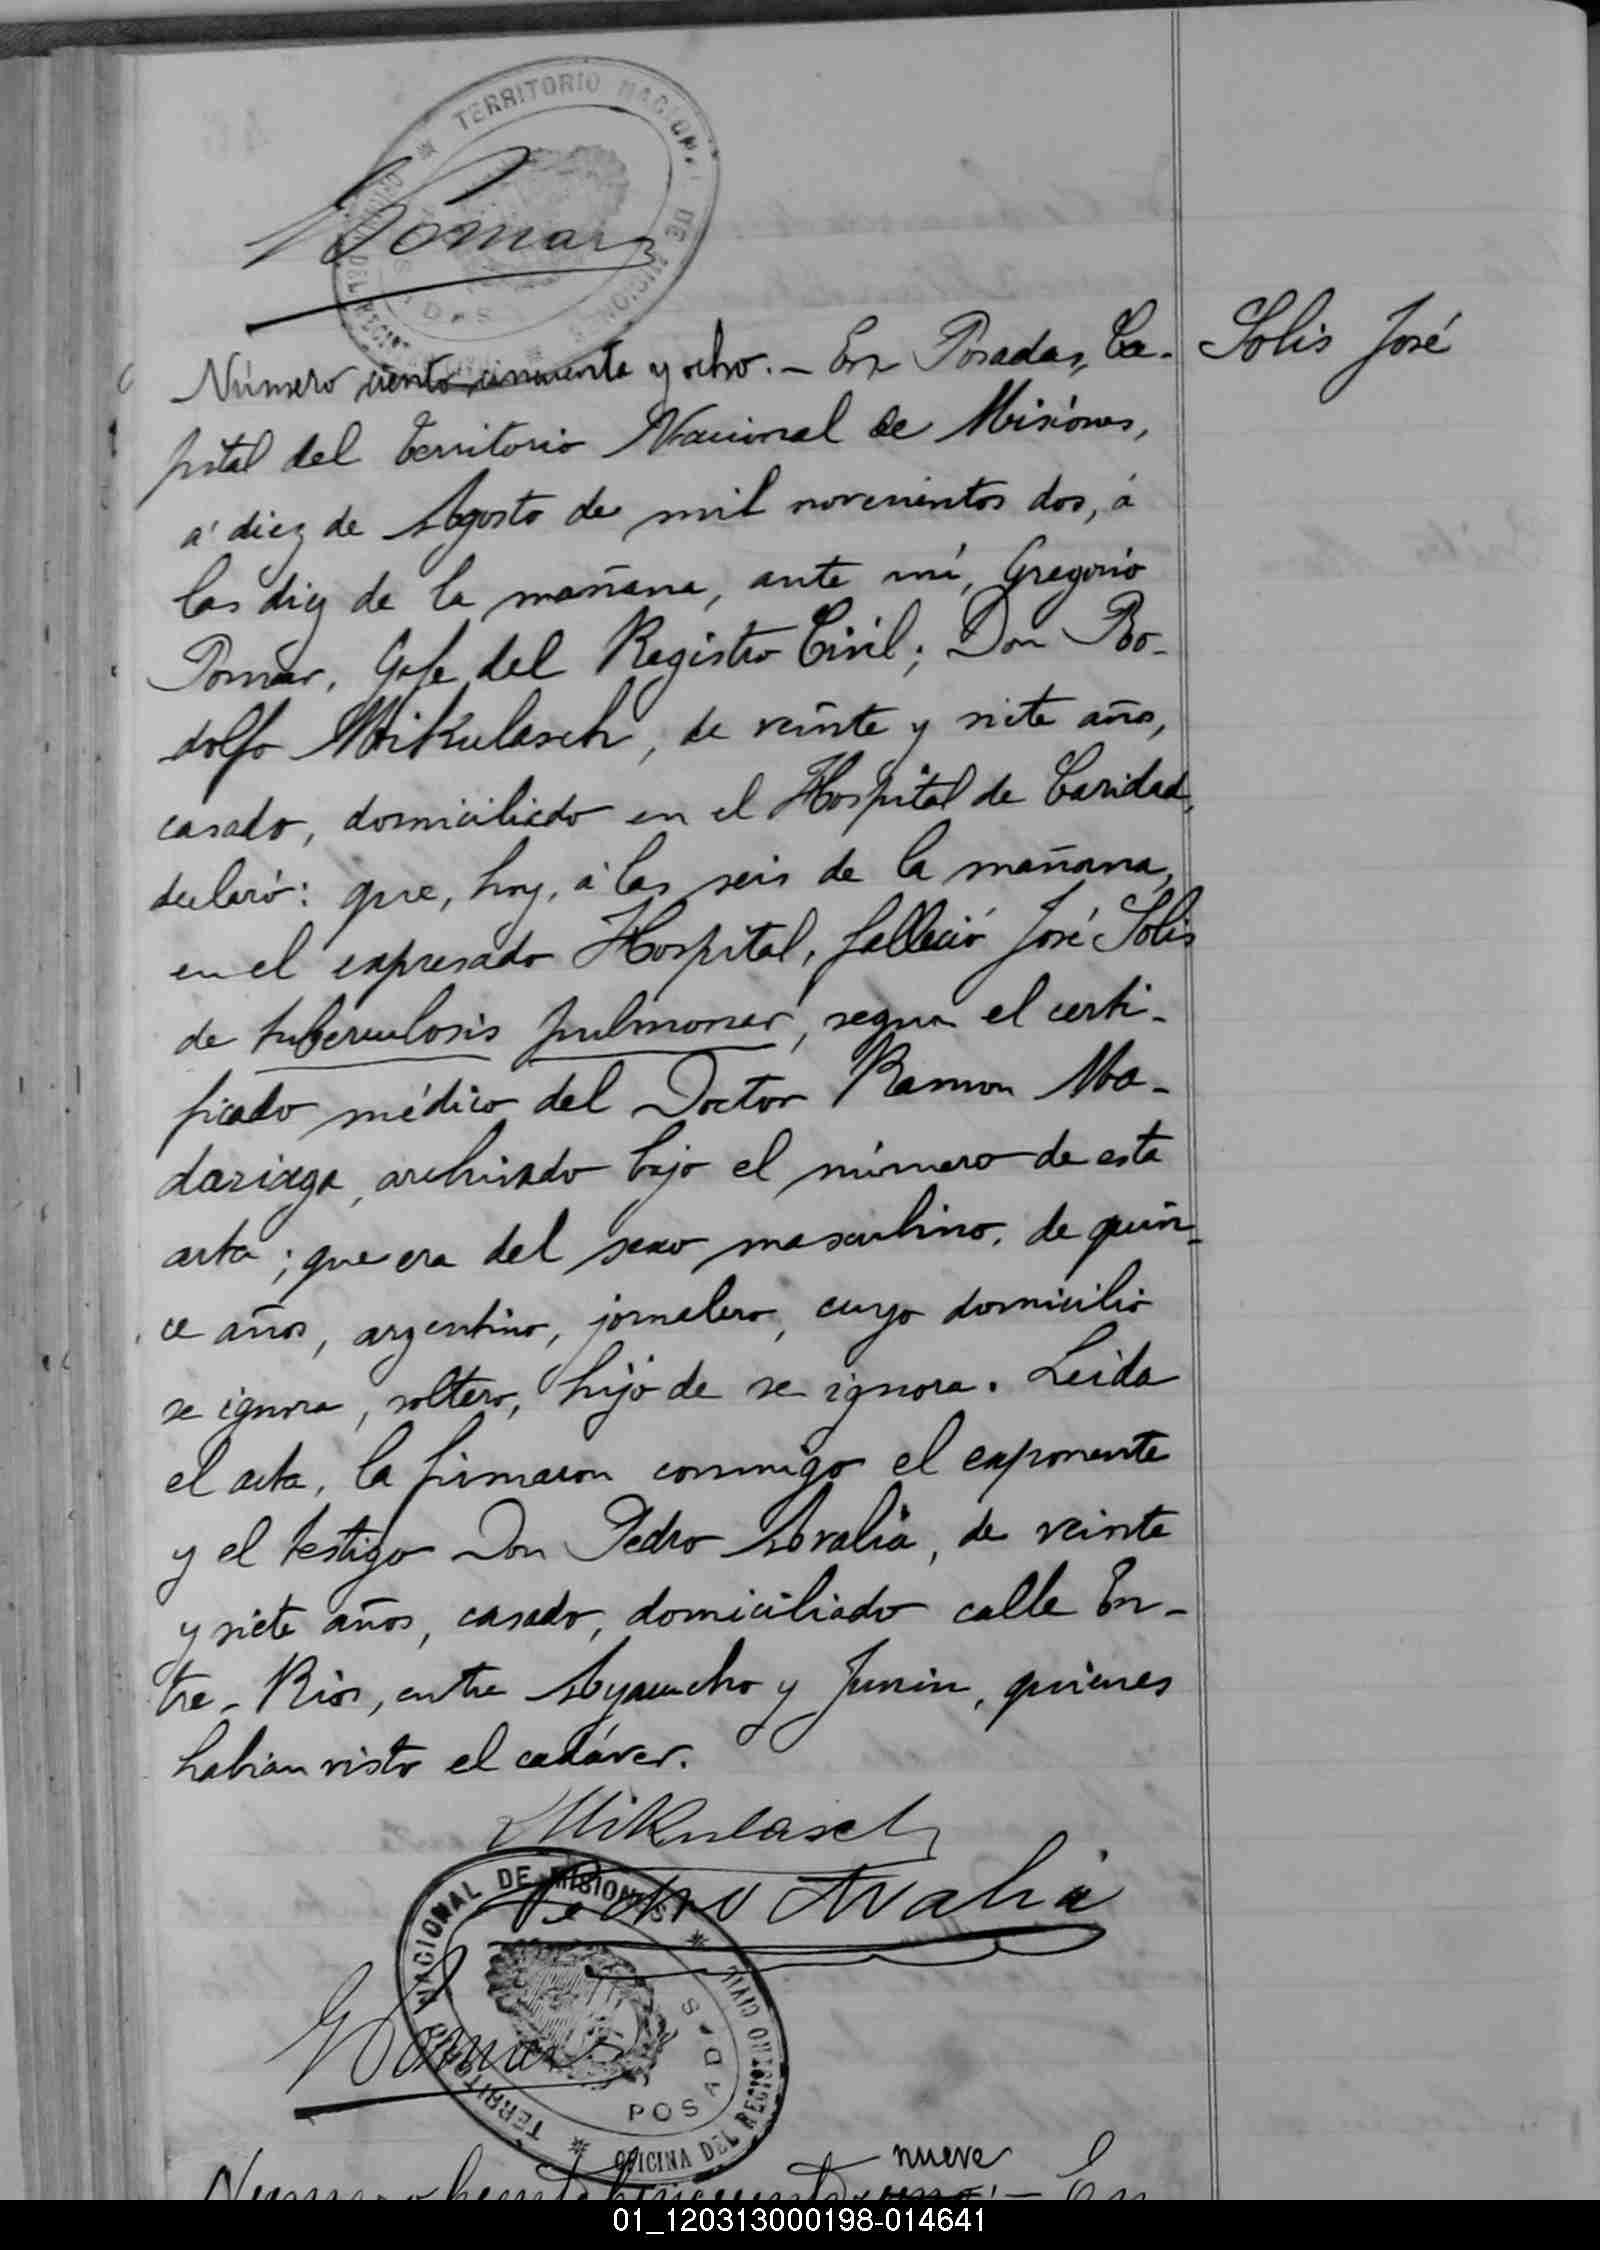 TERRITORIO NACIONAL DE MISIONES
Pomar
Número ciento cincuenta y ocho. - En Posadas, Ca-
Solis José
pital del Territorio Nacional de Misiones,
á diez de Agosto de mil novecientos dos, á
las diez de la mañana, ante mí, Gregorio
Pomar, Gefe del Registro Civil; Don Ro-
dolfo Mikulasch, de veinte y siete años,
casado, domiciliado en el Hospital de Caridad,
declaró: que, hoy, á las seis de la mañana,
en el expresado Hospital, falleció José Solis
de tuberculosis pulmonar, segun el certi-
ficado médico del Doctor Ramon Ma-
dariaga, archivado bajo el número de esta
acta; que era del sexo masculino, de quin-
ce años, argentino, jornalero, cuyo domicilio
se ignora, soltero, hijo de se ignora. Leida
el acta, la firmaron conmigo el exponente
y el testigo Don Pedro Avalia, de veinte
y siete años, casado, domiciliado calle En-
tre-Rios, entre Ayacucho y Junin, quienes
habian visto el cadáver.
Mikulasch
Pedro Avalia
GPomar
TERRITORIO NACIONAL DE MISIONES
OFICINA DEL REGISTRO CIVIL
POSADAS
nueve
Número ciento cincuenta y uno. - En
01_120313000198-014641